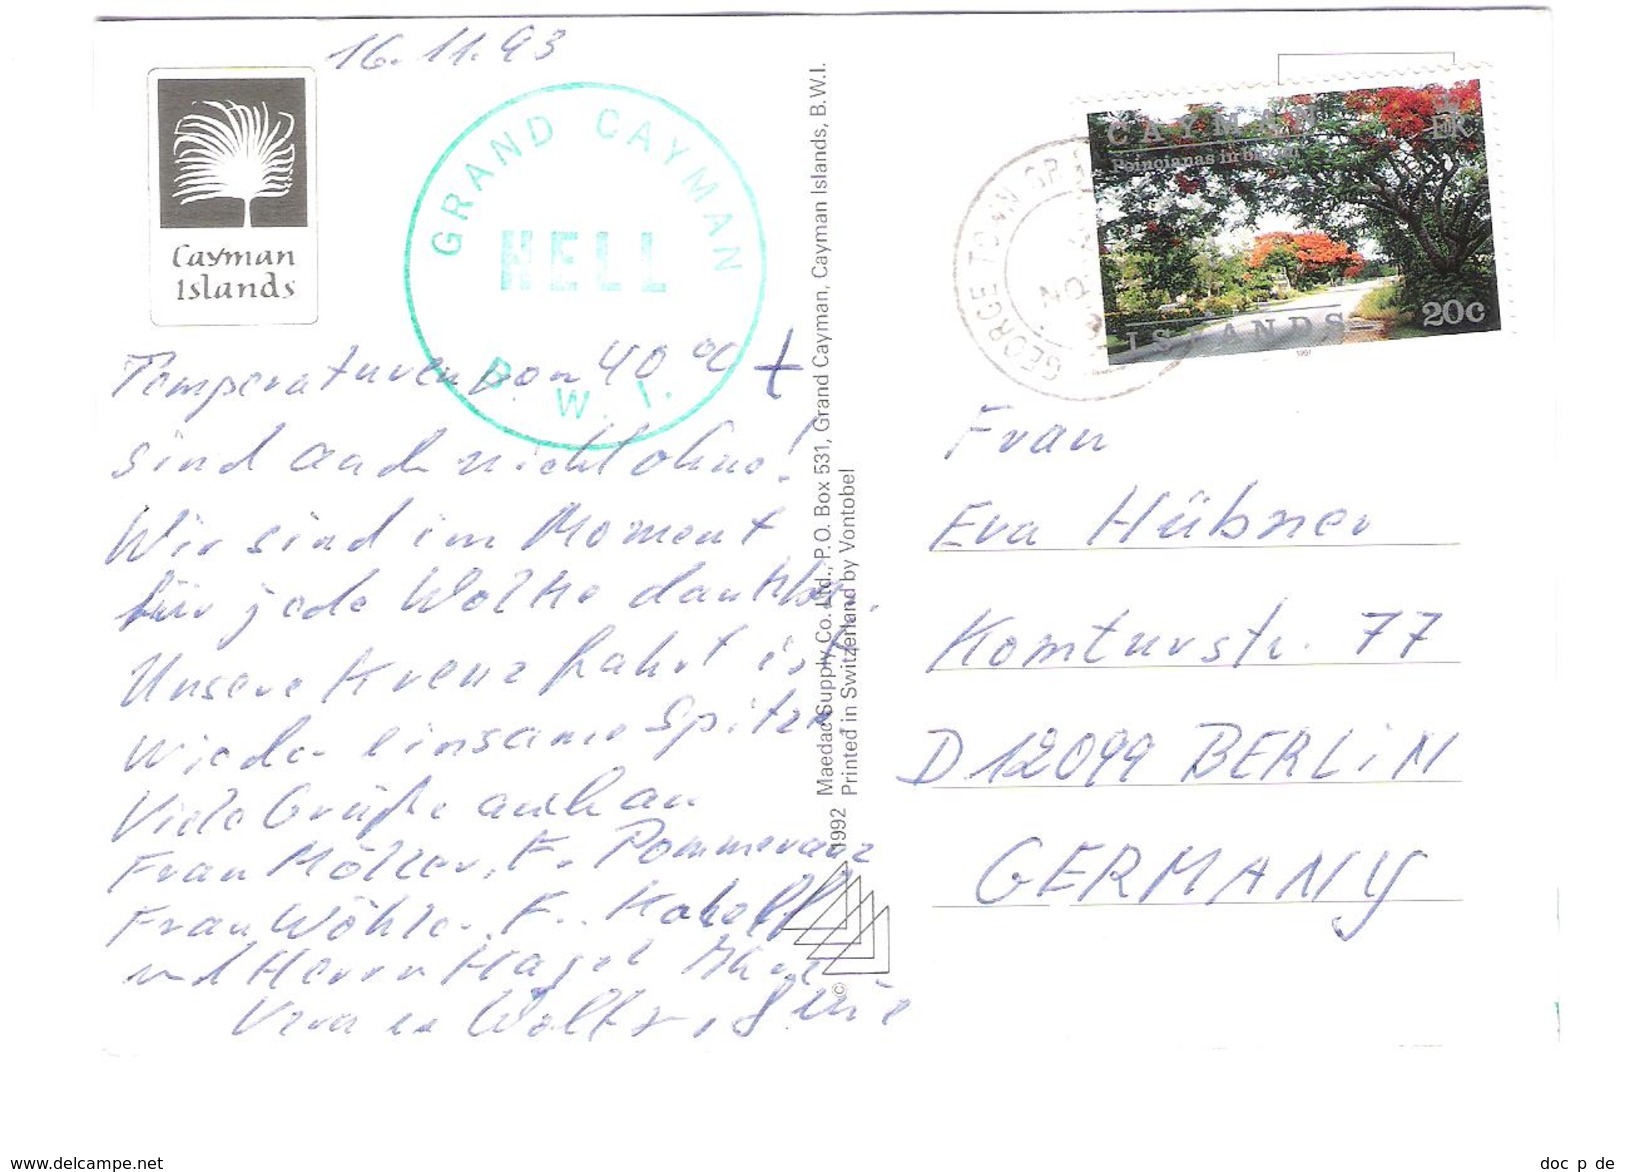 16.11.93
Cayman
Islands
GRAND CAYMAN
HELL
B. W. I.
Temperaturen von 40 °C +
sind auch nicht ohne!
Wir sind im Moment
für jede Wolke dankbar.
Unsere Kreuzfahrt ist
wieder einsame Spitze
Viele Grüße auch an
Frau Möller, F. Pommeranz
Frau Wöhle, F.
und Herrn Hagel
Vera u. Wolfg.
© 1992 Maedac Supply Co. Ltd., P.O. Box 531, Grand Cayman, Cayman Islands, B.W.I.
Printed in Switzerland by Vontobel
GEORGE TOWN GP
CAYMAN
Poincianas in bloom
ER
20c
ISLANDS
1991
Frau
Eva Hübner
Komturstr. 77
D 12099 BERLiN
GERMANY
www.delcampe.net
doc_p_de